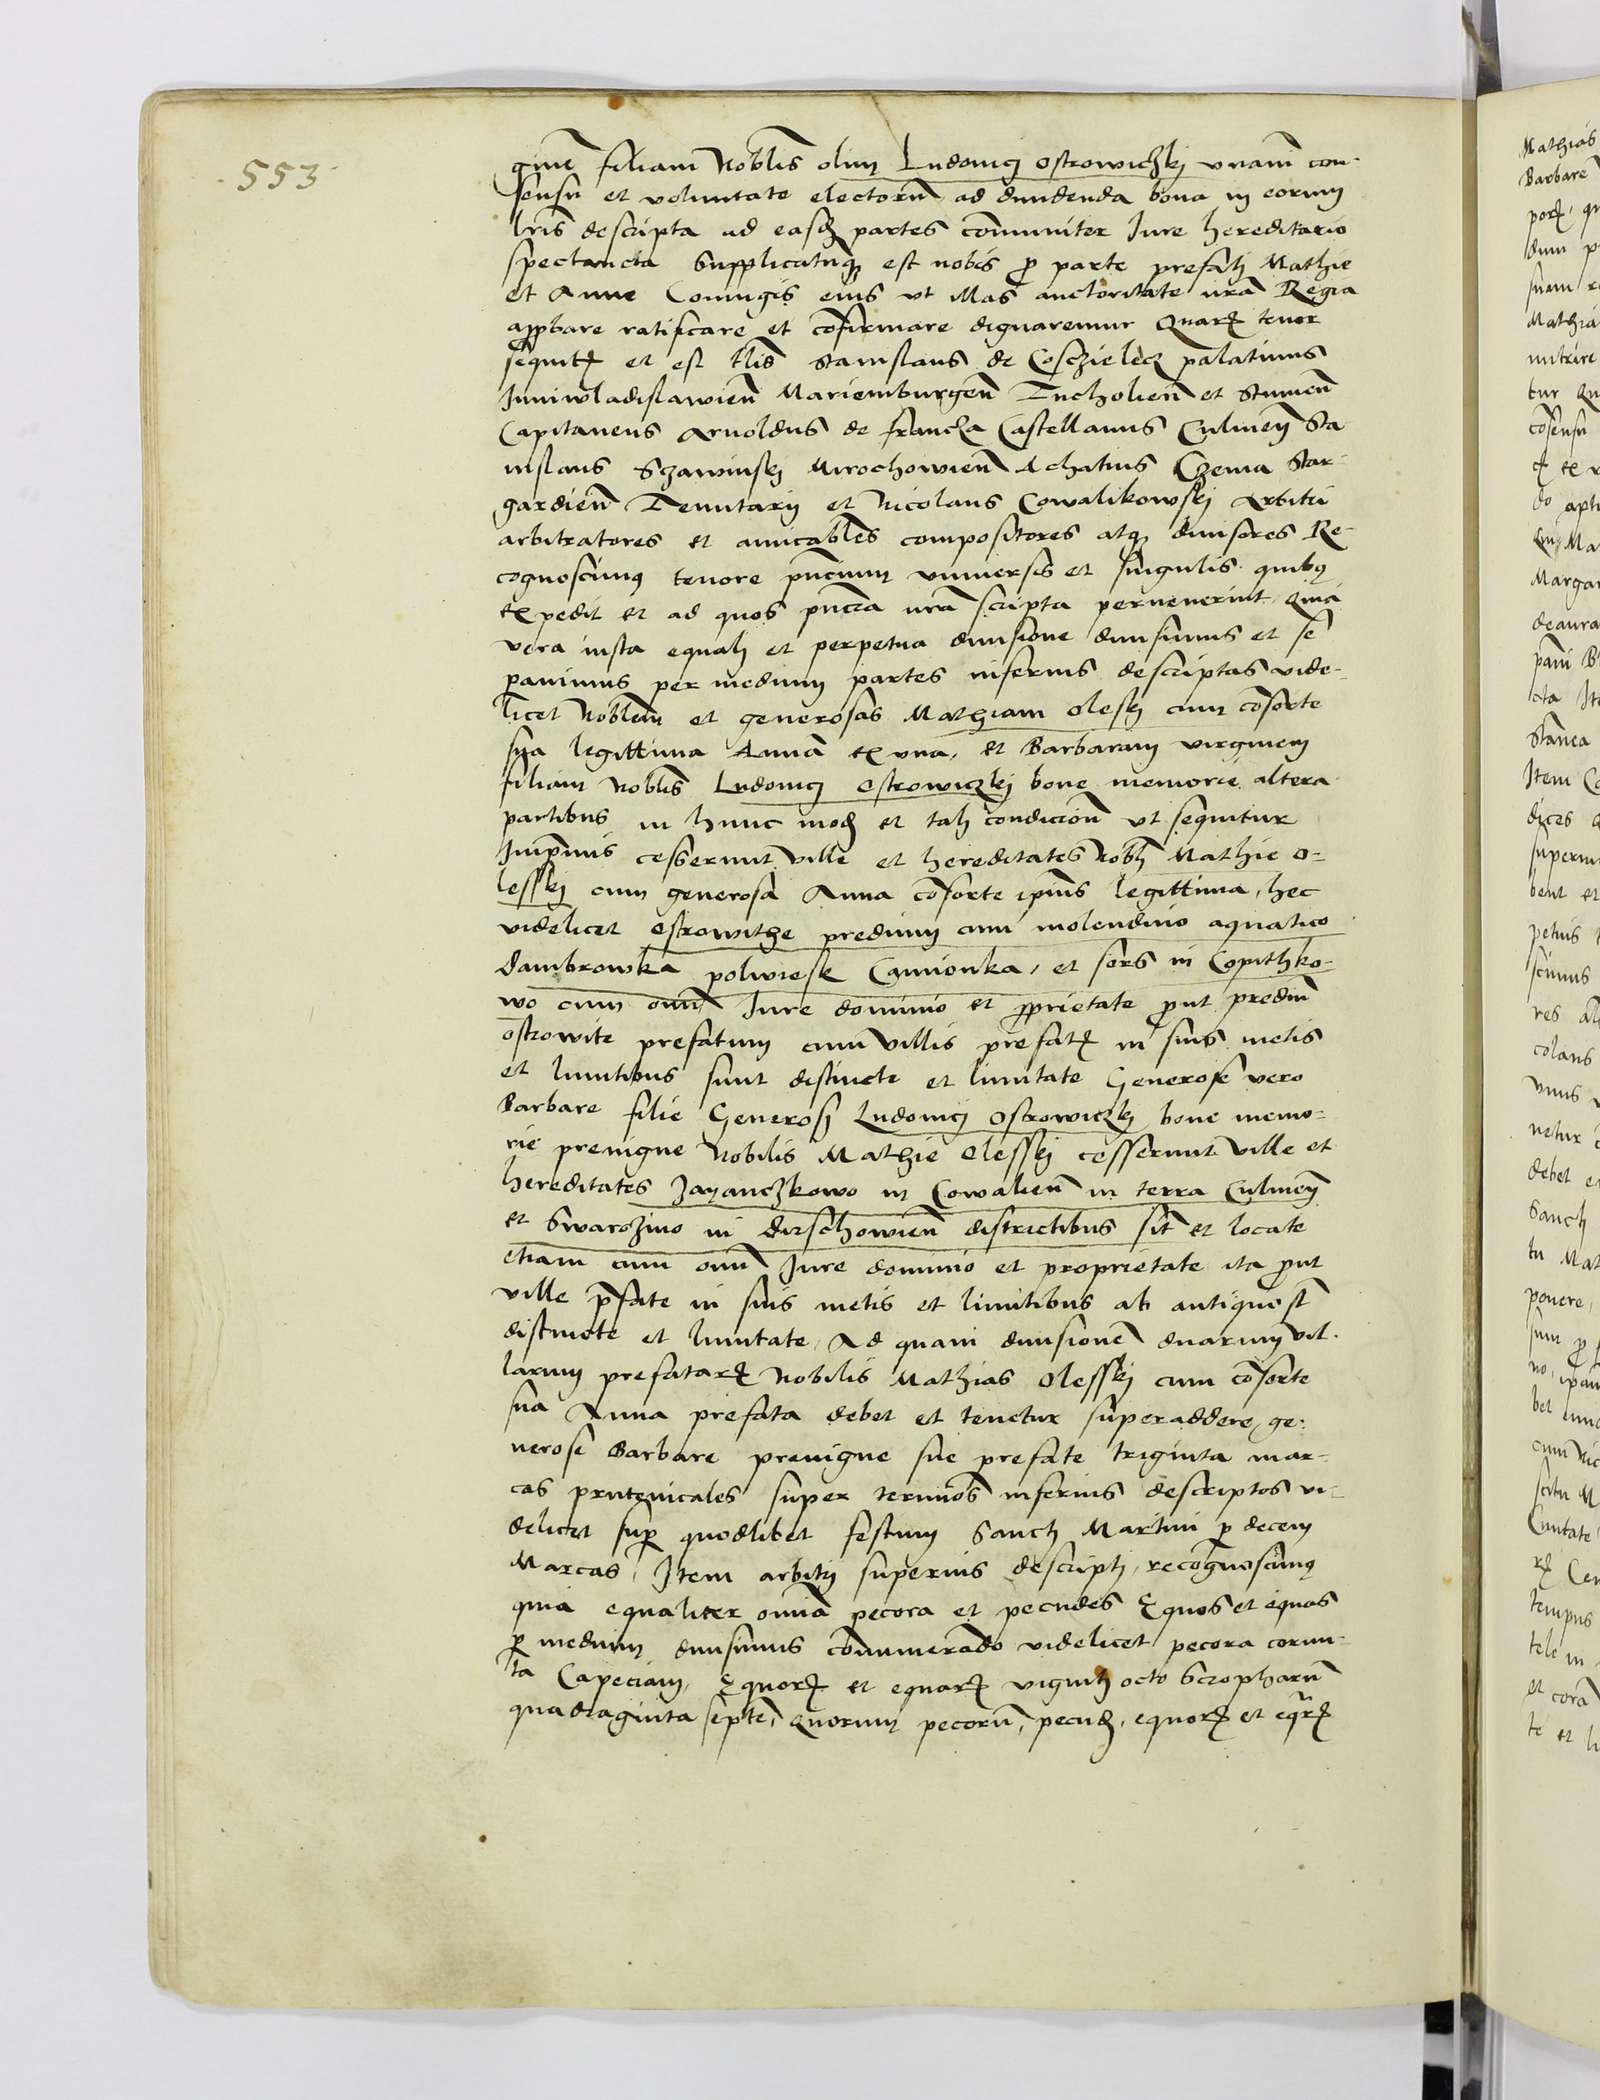 553
ginē filiam Nobīlis olim Ludouicj Ostrowiczkj vnam con-
sensu et voluntate electorū ad diuidenda bona in eorum
lr̄is descripta ad easdē partes comūniter Jure hereditario
spectancia Supplicatuqꝫ est nobis ꝓ parte prefatj Mathie
et Anne Coniugis eius vt illas auctoritate nrā Regia
approbare ratificare et cōfirmare dignaremur Quarꝫ tenor
sequitꝫ et est tlis̄ Stanislaus de Cosczielecz palatinus
Juniwladislawień Mariemburgeń Tucholień et Stumeń
Capitaneus Arnoldus de francza Castellanus Culmeń Sta
nislaus Sczawinskj Mirochowień Achatius Czema Star-
gardień Tenutarij et Nicolaus Cowalikowskj Arbitri
arbitratores et amicabl̄es compositores atqꝫ diuisores Re-
cognoscimꝰ tenore pn̄cium vniuersis et singulis quibꝰ
expedit et ad quos pn̄cia nrā scripta peruenerint Quia
vera iusta equalj et perpetua diuisione diuisimus et se
parauimus per medium partes inferius descriptas vide-
licet Nobīlem et generosas Mathiam Oleskj cum cōsorte
sua legittima Annā ex vna, et Barbaram virginem
filiam Nobl̄is Ludouicj Ostrowiczkj bone memorie altera
partibus in hunc modū et talj condicioñ vt sequitur
Jnprimis cesserunt ville et hereditates Nobl̄j Mathie O-
lesskj cum generosa Anna cōsorte ipius̄ legittima, hec
videlicet Ostrowithe predium cum molendino aquatico
Dambrowka polwiesk Camionka, et sors in Copithko-
wo cum omni Jure dominio et ꝓprietate ꝓut prediū
ostrowite prefatum cum villis prefatꝫ in suis metis
et limitibus sunt distincte et limitate Generose vero
Barbare filie Generosj Ludouicj Ostrowiczkj bone memo-
rie preuigne Nobilis Mathie Olesskj cesserunt ville et
hereditates Jayanczkowo in Cowalień in terra Culmeń
et Swarozino in dirschowień districtibus sit̄ et locate
etiam cum omni Jure dominio et proprietate ita ꝓut
ville p̄fate in suis metis et limitibus ab antiquo st̄
distincte et limitate, Ad quam diuisionē duarum vil-
larum prefatarꝫ Nobilis Mathias Olesskj cum cōsorte
sua Anna prefata debet et tenetur superaddere ge-
nerose Barbare preuigne sue prefate triginta mar-
cas prutenicales super terminos inferius descriptos vi-
delicet sup̄ quodlibet festum Sanctj Martini ꝑ decem
Marcas, Jtem arbitrj superius descriptj, recognoscimꝰ
quia equaliter omīa pecora et pecudes Equos et equas
ꝑ medium diuisimus cōnumerādo videlicet pecora cornu-
ta Capeciam, Equorꝫ et equarꝫ vigintj octo Scropharū
quadraginta septē, Quorum pecorū, pecudꝫ, equorꝫ et eqr̄ꝫ